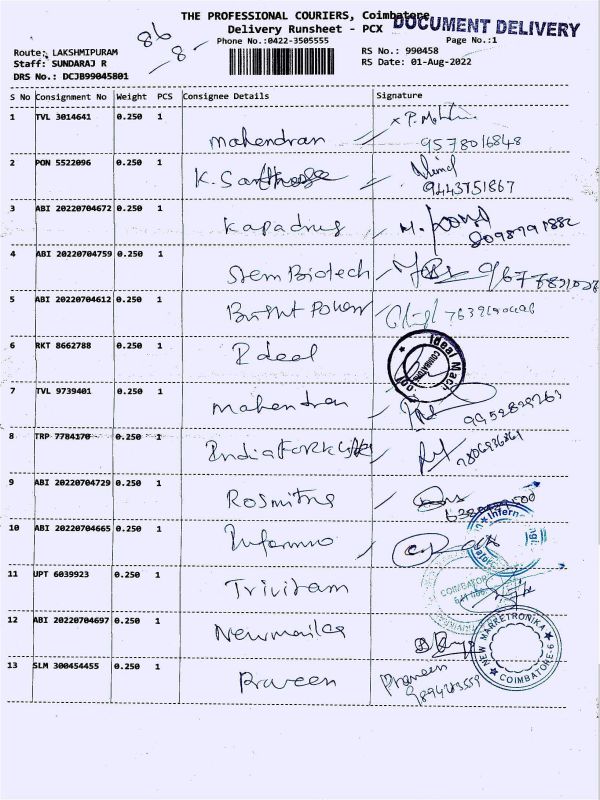 THE PROFESSIONAL COURIERS, Coimbatore
DOCUMENT DELIVERY
Delivery Runsheet - PCX
86
-8-
Phone No.:0422-3505555
Page No.:1
Route: LAKSHMIPURAM
RS No.: 990458
Staff: SUNDARAJ R
RS Date: 01-Aug-2022
DRS No.: DCJB99045801
S No Consignment No Weight PCS Consignee Details Signature
1 TVL 3014641 0.250 1 Mahendran
9578016848
2 PON 5522096 0.250 1 K. Santhosh
9443751867
3 ABI 20220704672 0.250 1 Kapadrug
8098791882
4 ABI 20220704759 0.250 1 Stem Biotech
5 ABI 20220704612 0.250 1 Power
6 RKT 8662788 0.250 1 Ideal
Ideal Mach
COIMBATORE
7 TVL 9739401 0.250 1 Mahendran
9952829263
8 TRP 7784170 0.250 1 India Forklift
9 ABI 20220704729 0.250 1 Rosmitha
10 ABI 20220704665 0.250 1
Intern
11 UPT 6039923 0.250 1
COIMBATOR
12 ABI 20220704697 0.250 1
NEW MARKETRONIKA
COIMBATORE-6
13 SLM 300454455 0.250 1 Praveen
Praveen